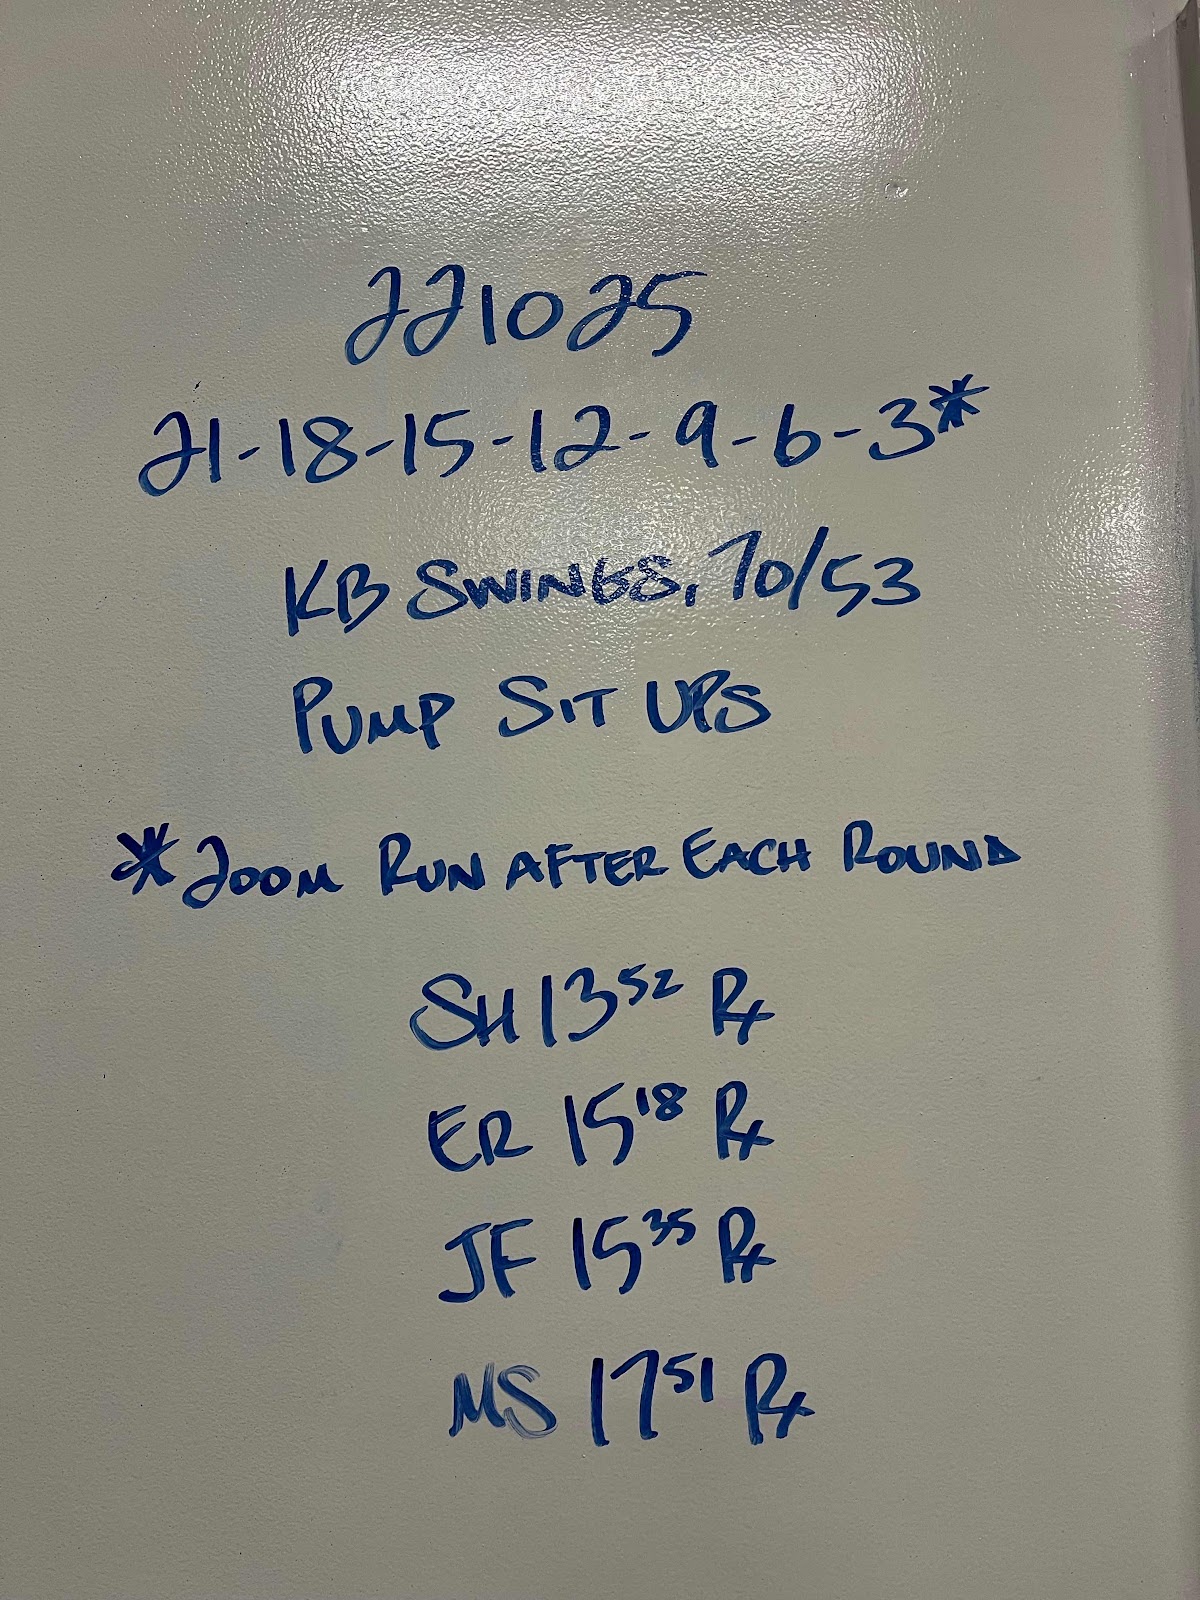 221025
21-18-15-12-9-6-3*
KB SWINGS, 70/53
PUMP SIT UPS
*200M RUN AFTER EACH ROUND
SH 13⁵² Rx
ER 15¹⁸ Rx
JF 15³⁵ Rx
MS 17⁵¹ Rx